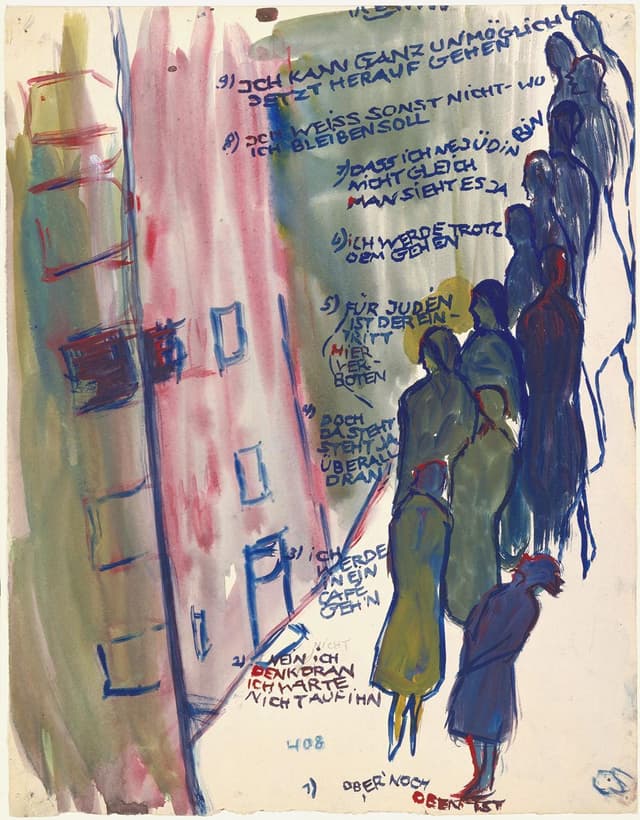 9) ICH KANN GANZ UNMÖGLICH
JETZT HERAUF GEHEN
8) ICH WEISS SONST NICHT-WO
ICH BLEIBEN SOLL
7) DASS ICH NE JÜDIN BIN
NICHT GLEICH
MAN SIEHT ES JA
6) ICH WERDE TROTZ
DEM GEHEN
5) FÜR JUDEN
IST DER EIN-
TRITT
HIER
VER-
BOTEN
4) DOCH
DA STEHT
STEHT JA
ÜBERALL
DRAN
3) ICH
WERDE
IN EIN
CAFE
GEH'N
NICHT
2) NEIN ICH
DENK DRAN
ICH WARTE
NICHT AUF IHN
408
1) OBER NOCH
OBEN IST